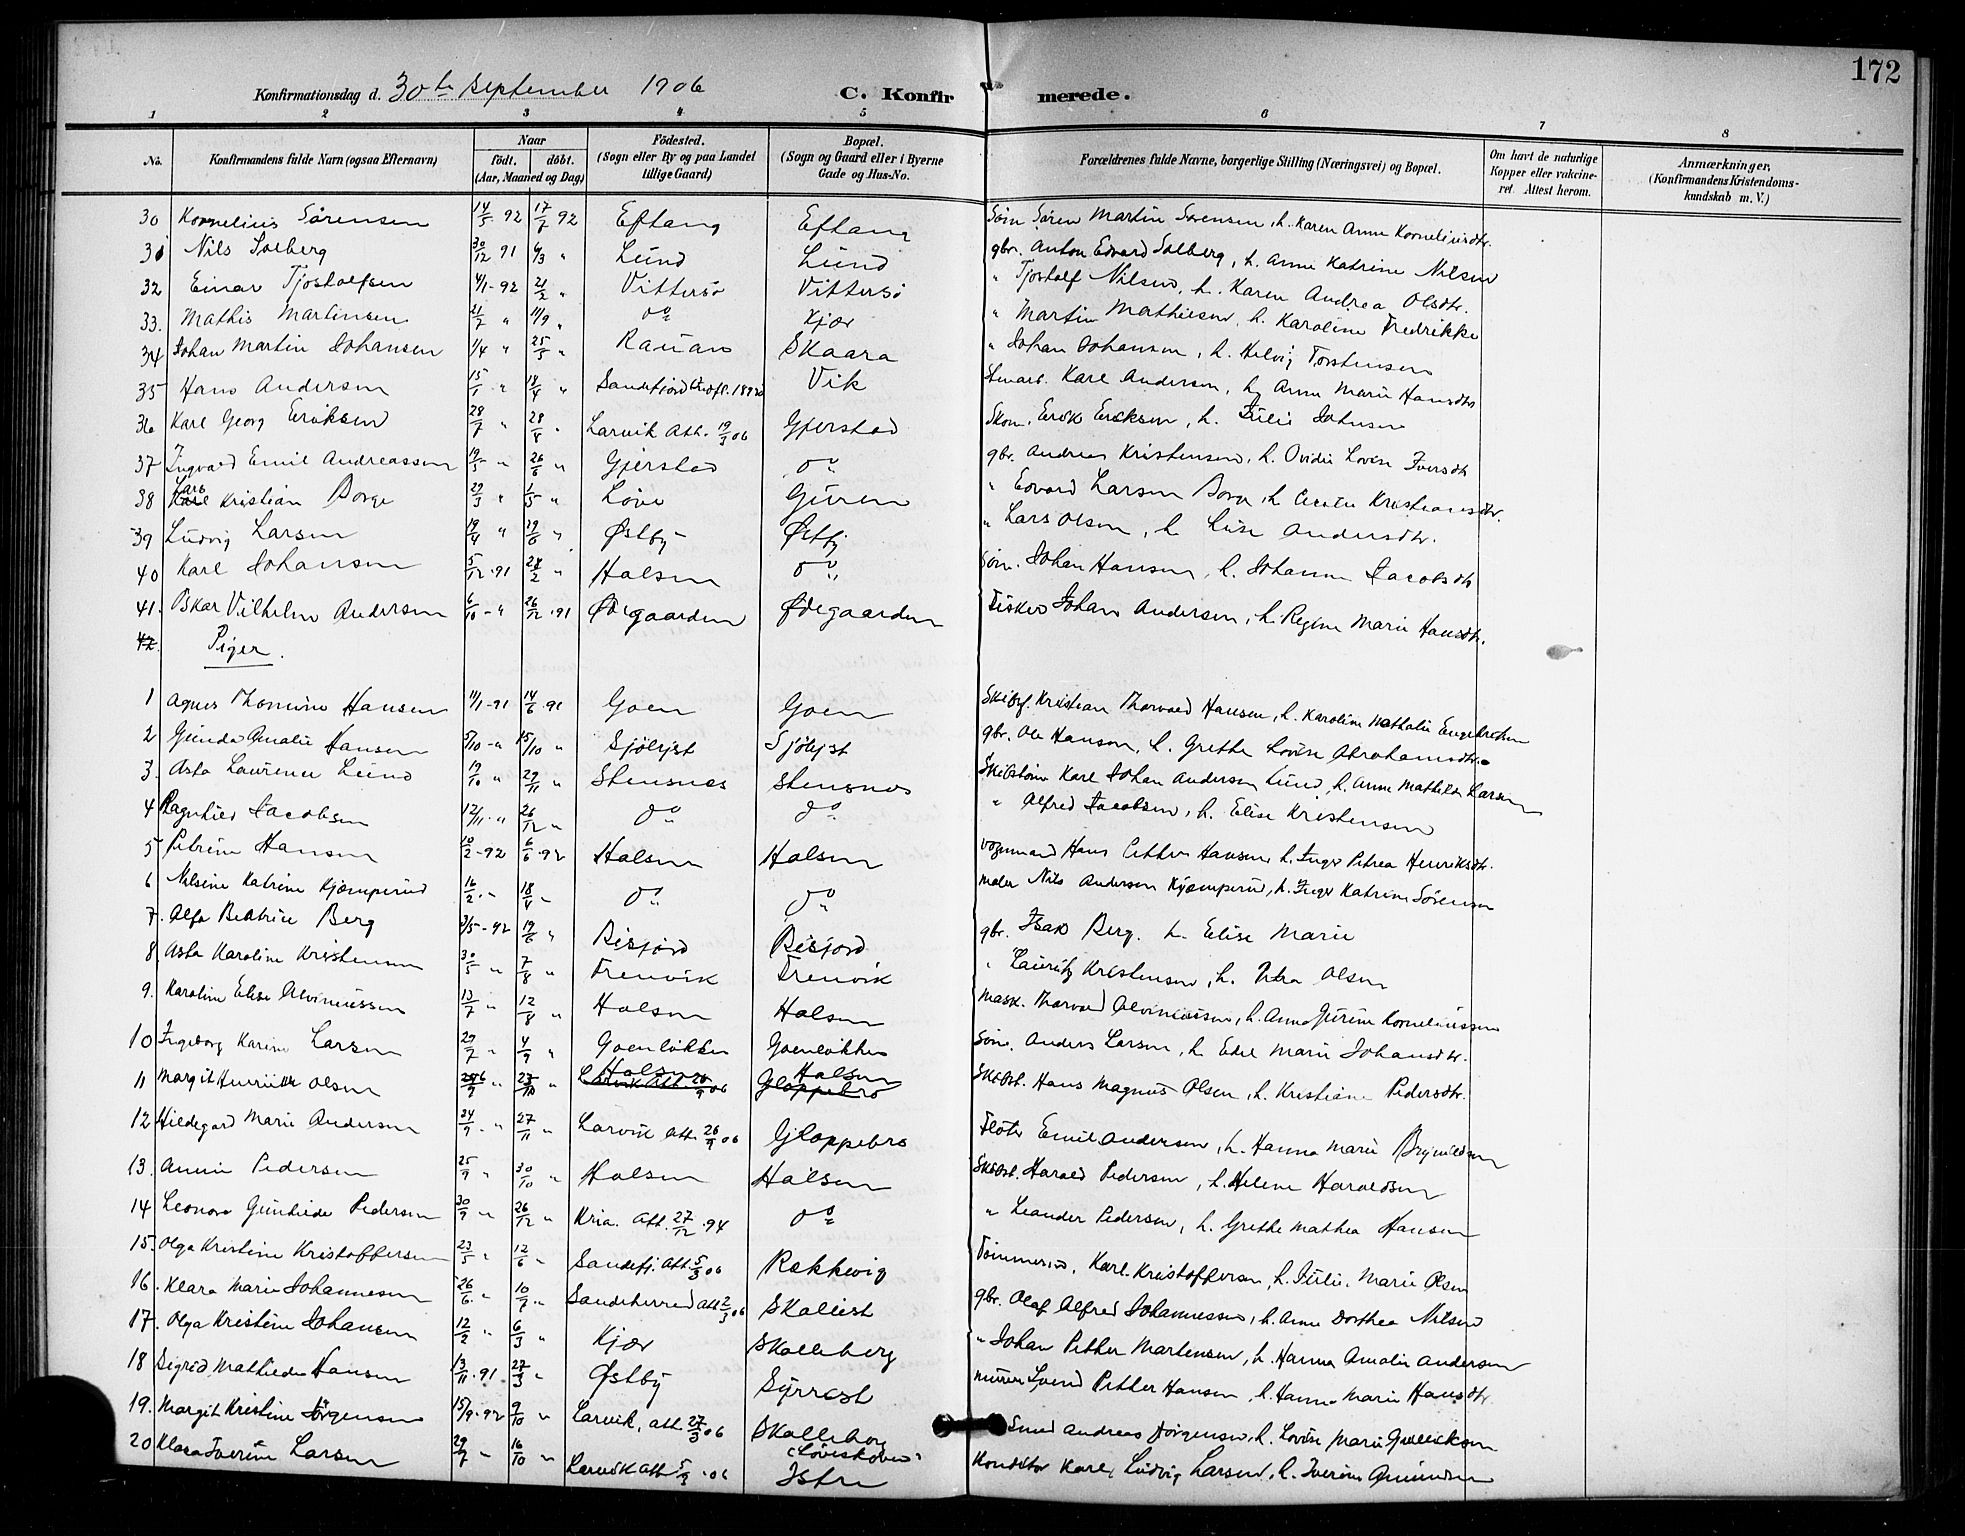 172
Konfirmationsdag d. 30te September 1906 C. Konfirmerede.
1 2 3 4 5 6 7 8
No. Konfirmandens fulde Navn (ogsaa Efternavn) Naar født. døbt. (Aar, Maaned og Dag) Födested. (Sogn eller By og paa Landet tillige Gaard) Bopæl. (Sogn og Gaard eller i Byerne Gade og Hus-No. Forældrenes fulde Navne, borgerlige Stilling (Næringsvei) og Bopæl. Om havt de naturlige Kopper eller vakcineret. Attest herom. Anmærkninger, (Konfirmandens Kristendomskundskab m. V.)
30 Kornelius Sörensen 14/5 92 17/7 92 Eftang Eftang Söm. Sören Martin Sørensen, h. Karen Anne Korneliusdtr.
31 Nils Solberg 30/12 91 6/3 " Lund Lund gbr. Anton Edvard Solberg, h. Anne Katrine Nilsen
32 Einar Tjostolfsen 4/1-92 21/2 " Vittersö Vittersö " Tjostolf Nilsen, h. Karen Andrea Olsdtr.
33. Mathis Martinsen 21/7 " 11/9 " do Kjær " Martin Mathisen, h. Karoline Fredrikke
34 Johan Martin Johansen 1/4 " 25/5 " Rauan Skaara " Johan Johansen, h. Helvig Torstensen
35 Hans Andersen 15/1 " 18/4 " Sandefjord Vik Stenarb. Karl Andersen, h. Anne Marie Hansdtr
36 Karl Georg Eriksen 28/7 " 28/8 " Larvik Att. 19/3 06 Gjerstad Skom. Erik Eriksen, h. Julie Johnsen
37 Ingvald Emil Andreassen 19/5 " 26/6 " Gjerstad do gbr. Andreas Kristensen, h. Ovidie Lovise Iversdtr
38 Lars Kristian Borge 29/3 " 1/5 " Löve Guren " Edvard Larsen Borge, h. Cecilie Kristiansdtr.
39 Ludvig Larsen 19/4 " 19/6 " Østby Østby " Lars Olsen, h. Lise Andersdtr.
40 Karl Johansen 5/12.91 28/2 " Halsen do Söm. Johan Hansen, h. Johanne Jacobsdtr
41. Oskar Vilhelm Andersen 6/10 - " 26/12.91 Ødegaarden Ødegaarden Fisker Johan Andersen, h. Regine Marie Hansdtr.
42 Piger.
1 Agnes Thomine Hansen 11/1-91 14/6.91 Goen Goen Skibsf. Kristian Thorvald Hansen, h. Karoline Mathalie Engebretsen
2 Gunda Amalie Hansen 5/10 - " 15/10 " Sjölyst Sjölyst gbr. Ole Hansen, h. Grethe Lovise Abrahamsdtr.
3. Asta Laurence Lund 19/10 " 29/11 " Stensnes Stensnes Skibstöm. Karl Johan Andersen Lund, h. Anne Mathilde Larsen
4 Ragnhild Jacobsen 12/11 " 26/12 " do do " Alfred Jacobsen, h. Elise Kristensen
5 Petrine Hansen 10/2-92 6/6.92 Halsen Halsen Vognmand Hans Petter Hansen, h. Inger Petrea Henriksdtr.
6 Nilsine Katrine Kjæmperud 16/2 . " 18/4 " do do Maler Nils Andersen Kjæmperud, h. Inger Katrine Sörensen
7. Alfa Beatrice Berg 3/5-92 19/6 " Bisjord Bisjord gbr. Isak Berg. h. Elise Marie
8 Asta Karoline Kristensen 30/5 " 7/8 " Trenvik Trenvik " Lauritz Kristensen, h. Olsen
9. Karoline Elise Alvinussen 13/7 " 12/8 " Halsen Halsen Mask. Thorvald Alvinussen, h. Anna Gurine Korneliussen
10 Ingeborg Karine Larsen 29/7 " 4/9 " Goenlökken Goenlökken Söm. Anders Larsen, h. Edel Marie Johansdtr.
11 Margit Henriette Olsen 6/9 " 23/10 " Halsen Larvik Att 26/9 06 Halsen Gloppebro Skibst. Hans Magnus Olsen, h. Kristiane Pedersdtr.
12 Hildegard Marie Andersen 24/9 . " 27/11 " Larvik Att. 26/9 06 Gloppebro Flöter Emil Andersen, h. Hanna Marie Brynildsen
13. Anni Pedersen 25/9 " 30/10 " Halsen Halsen Skibst. Harald Pedersen, h. Helene Haraldsen
14 Leonora Gunhilde Pedersen 30/9 " 26/12 " Kria. Att. 27/12.94 do " Leander Pedersen, h. Grethe Mathea Hansen
15. Olga Kristine Kristoffersen 23/5 " 12/6 " Sandefj. Att. 5/3 06 Rekkevig Tömmerm. Karl Kristoffersen, h. Julie Marie Olsen
16. Klara Marie Johannesen 26/6 . " 10/7 " Sandeherred Att 2/3 06 Skallist gbr. Olaf Alfred Johannessen, h. Anne Dorthea Nilsen
17. Olga Kristine Johansen 12/2 " 6/3 " Kjær Skalleberg " Johan Petter Martensen, h. Hanna Amalie Andersen
18 Sigrid Mathilde Hansen 13/11.91 27/3 " Østby Syrrest Murer Svend Petter Hansen, h. Hanna Marie Hansdtr.
19. Margit Kristine Jörgensen 15/9.92 9/10 " Larvik, att. 27/3 06 Skalleberg (Löveskoven) Smed Andreas Jörgensen, h. Lovise Marie Gulliksen
20 Klara Iverine Larsen 29/7 " 16/10 " Larvik Att 5/3 . 06 Istre Konditor Karl Ludvig Larsen, h. Iverine Amundsen